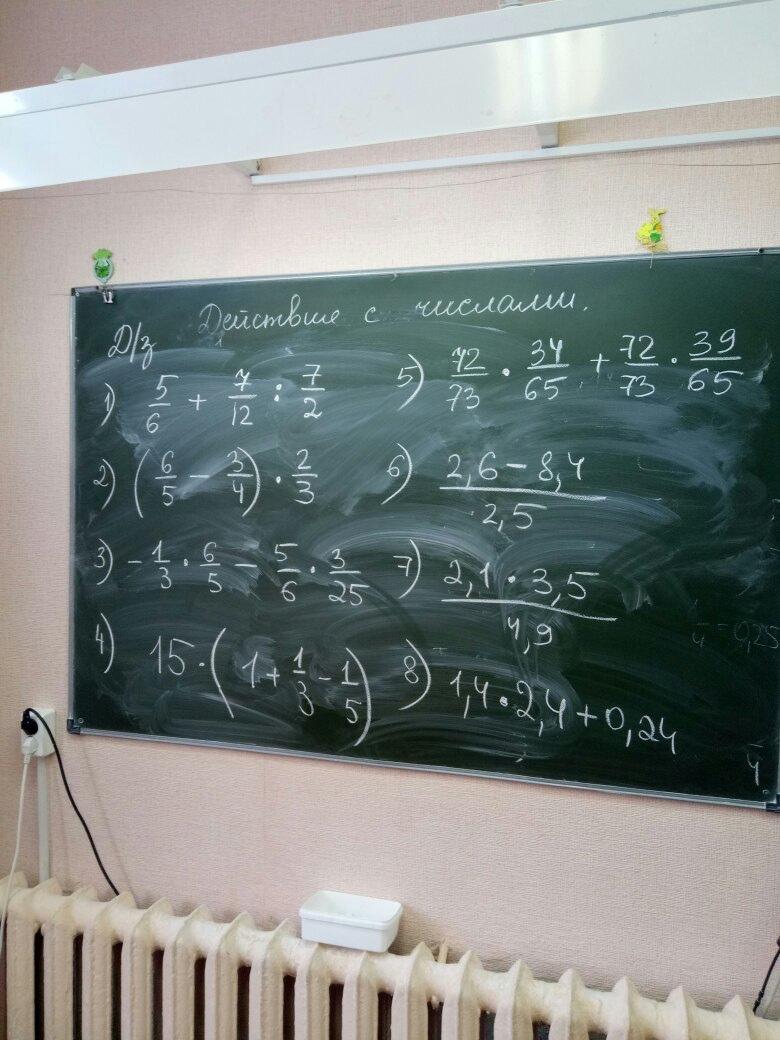 Действие с числами.
Д/з
1) 5/6 + 7/12 : 7/2
2) (6/5 - 3/4) · 2/3
3) - 1/3 · 6/5 - 5/6 · 3/25
4) 15 · (1 + 1/3 - 1/5)
5) 72/73 · 34/65 + 72/73 · 39/65
6) 2,6 - 8,4 / 2,5
7) 2,1 · 3,5 / 4,9
8) 1,4 · 2,4 + 0,24
1/4 = 0,25
4